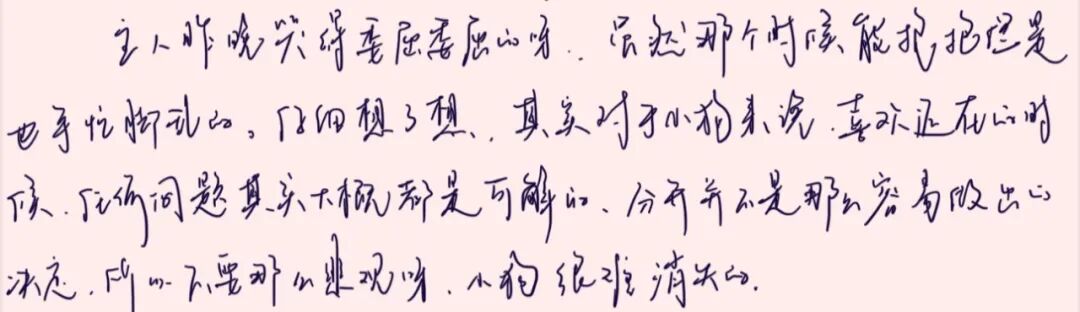 主人昨晚哭得委屈委屈的呀，虽然那个时候能抱抱但是
也手忙脚乱的。仔细想了想，其实对于小狗来说，喜欢还在的时
候，任何问题其实大概都是可解的，分开并不是那么容易做出的
决定，所以不要那么悲观呀，小狗很难消失的。